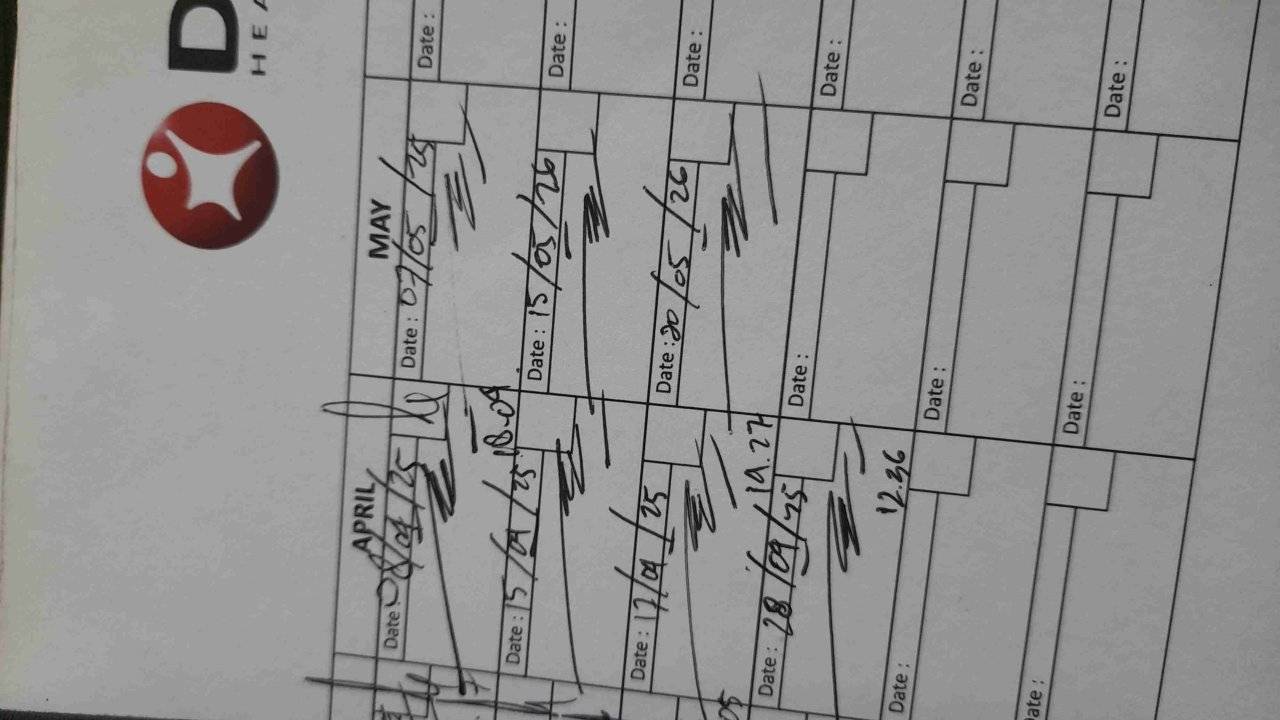 D
HEA
APRIL
MAY
Date : 08/04/25
Date : 07/05/25
Date :
18.09
Date : 15/04/25
Date : 15/05/26
Date :
Date : 17/04/25
Date : 20/05/26
Date :
19.27
Date : 28/04/25
Date :
Date :
12.36
Date :
Date :
Date :
Date :
Date :
Date :
05